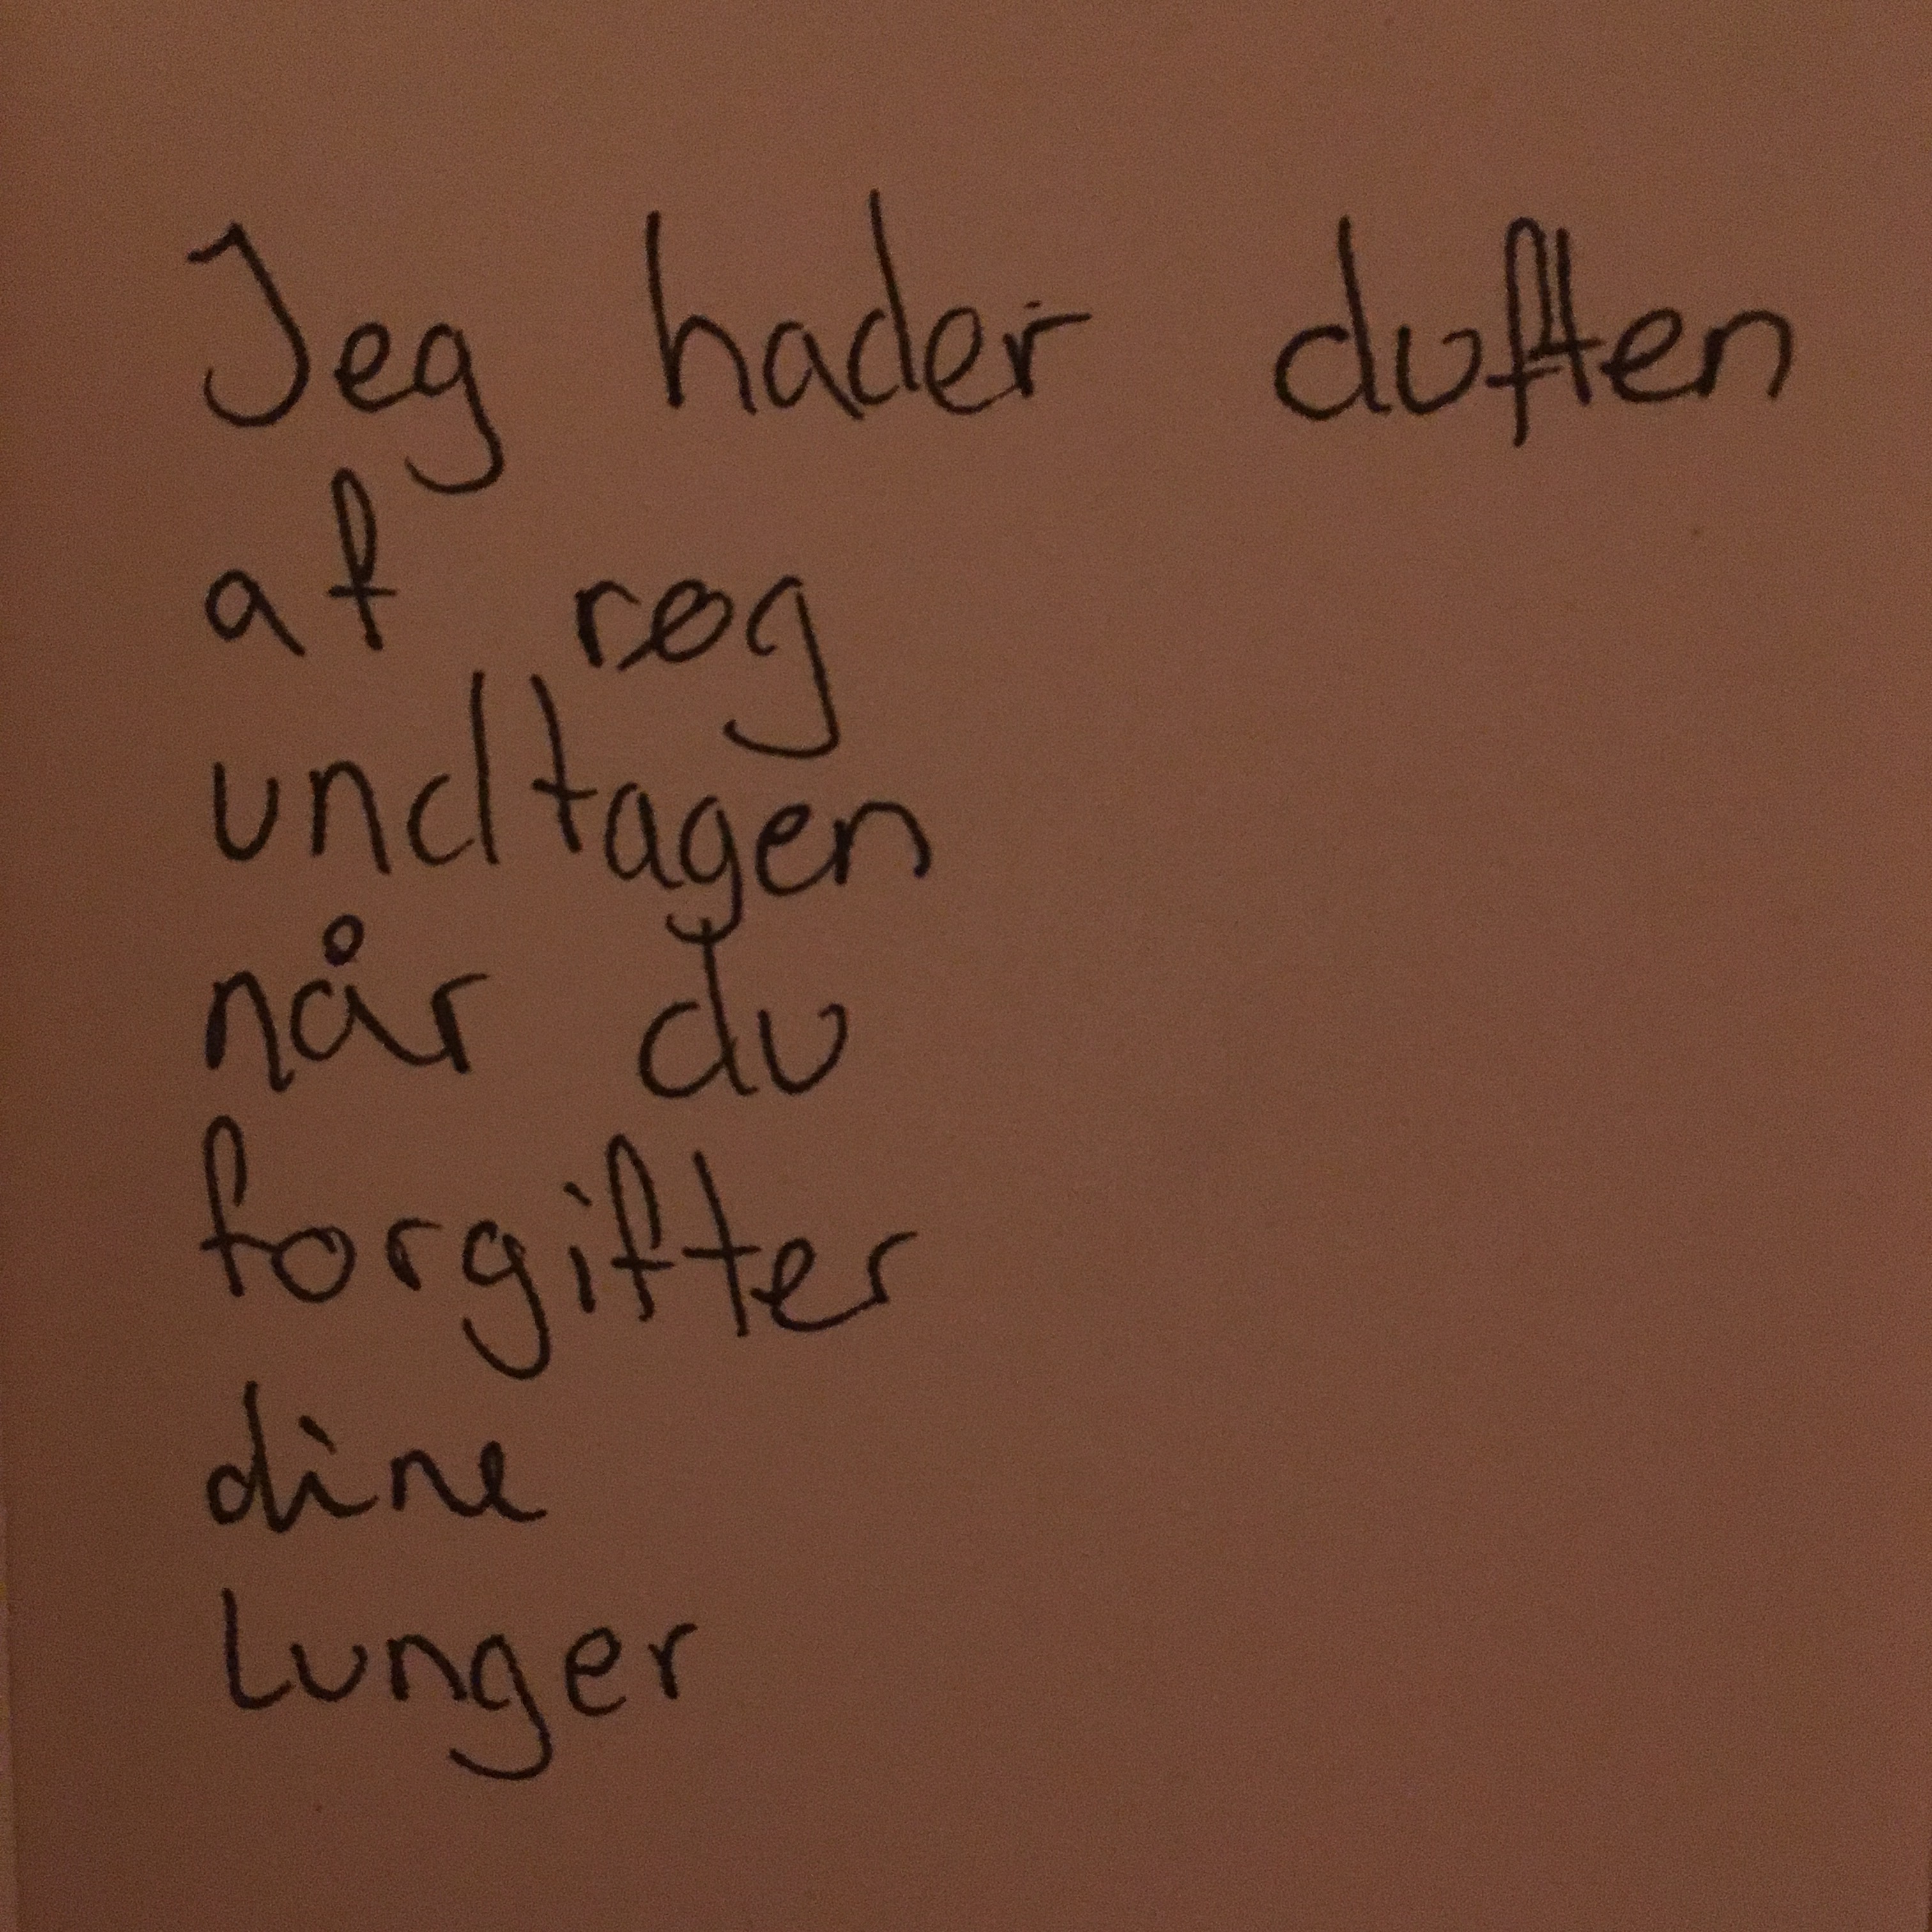 Jeg hader duften
af røg
undtagen
når du
forgifter
dine
lunger